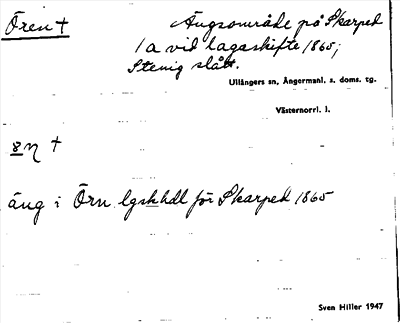 Ören +
Ängsområde på Skarped
1a vid lagaskifte 1865;
Stenig slått.
Ullångers sn, Ångermanl. s. doms. tg.
Västernorrl. l.
äng i Örn lgskhdl för Skarped 1865
Sven Hiller 1947